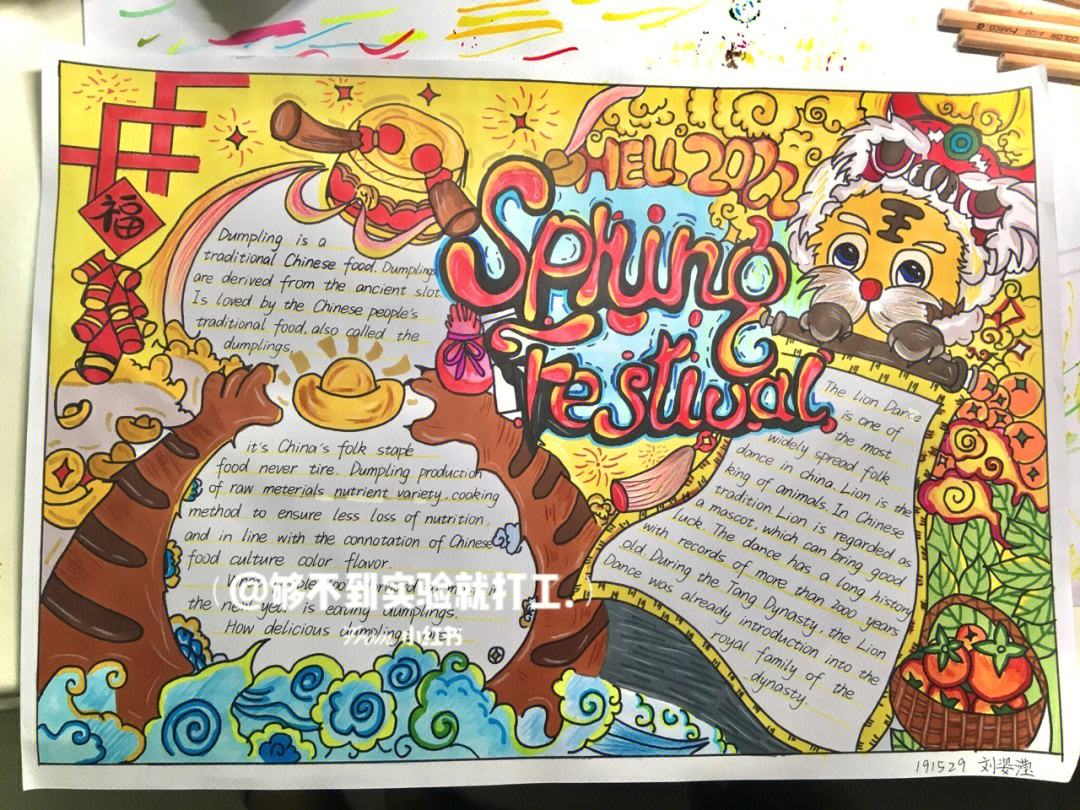 HELL 2022
Spring
Festival
福
王
Dumpling is a
traditional Chinese food. Dumplings
are derived from the ancient slot.
Is loved by the Chinese people's
traditional food, also called the
dumplings.
it's China's folk staple
food never tire. Dumpling production
of raw meterials nutrient variety, cooking
method to ensure less loss of nutrition,
and in line with the connotation of Chinese
food culture color flavor.
the new year is eating dumplings.
How delicious dumpling
The Lion Dance
is one of
the most
widely spread folk
dance in china. Lion is the
king of animals. In Chinese
tradition Lion is regarded as
a mascot, which can bring good
luck. The dance has a long history
with records of more than 2000 years
old. During the Tang Dynasty, the Lion
Dance was already introduction into the
royal family of the
dynasty.
@够不到实验就打工.
From 小红书
191529 刘姿滢
MARCO